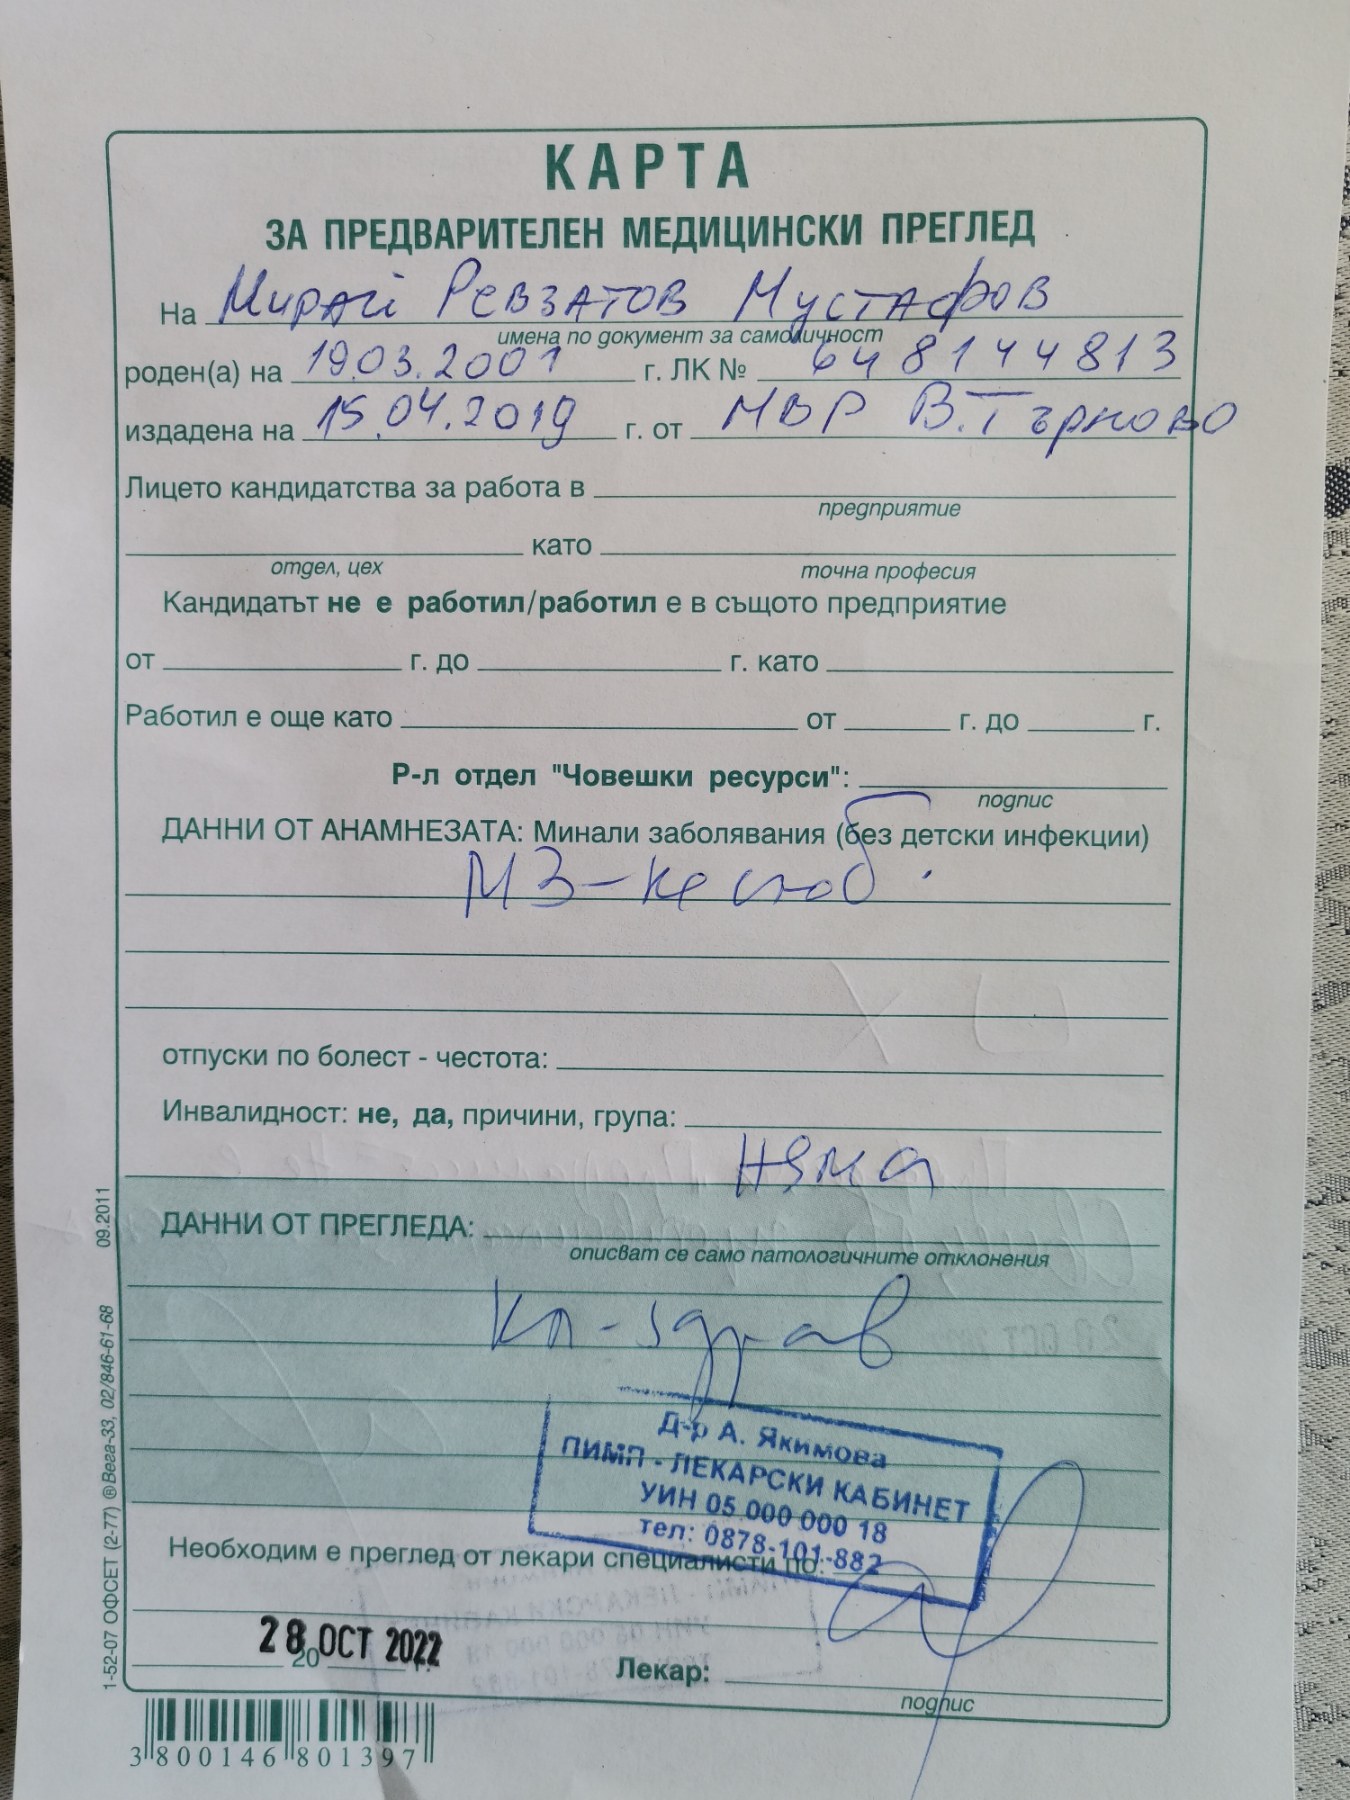 КАРТА
ЗА ПРЕДВАРИТЕЛЕН МЕДИЦИНСКИ ПРЕГЛЕД
На Мирай Ревзатов Мустафов
имена по документ за самоличност
роден(а) на 19.03.2001 г. ЛК № 648144813
издадена на 15.04.2019 г. от МВР В.Търново
Лицето кандидатства за работа в
предприятие
като
отдел, цех точна професия
Кандидатът не е работил/работил е в същото предприятие
от г. до г. като
Работил е още като от г. до г.
Р-л отдел "Човешки ресурси":
подпис
ДАННИ ОТ АНАМНЕЗАТА: Минали заболявания (без детски инфекции)
МЗ-не съоб.
отпуски по болест - честота:
Инвалидност: не, да, причини, група:
няма
ДАННИ ОТ ПРЕГЛЕДА:
описват се само патологичните отклонения
Кл-здрав
Д-р А. Якимова
ПИМП - ЛЕКАРСКИ КАБИНЕТ
УИН 05 000 000 18
тел: 0878-101-882
Необходим е преглед от лекари специалисти по:
28 ОСТ 2022
20 г.
Лекар:
подпис
3800146801397
1-52-07 ОФСЕТ (2-77) ®Вега-33, 02/846-61-68 09.2011